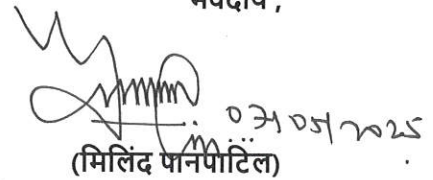 भवदीय,
07/05/2025
(मिलिंद पानपाटिल)